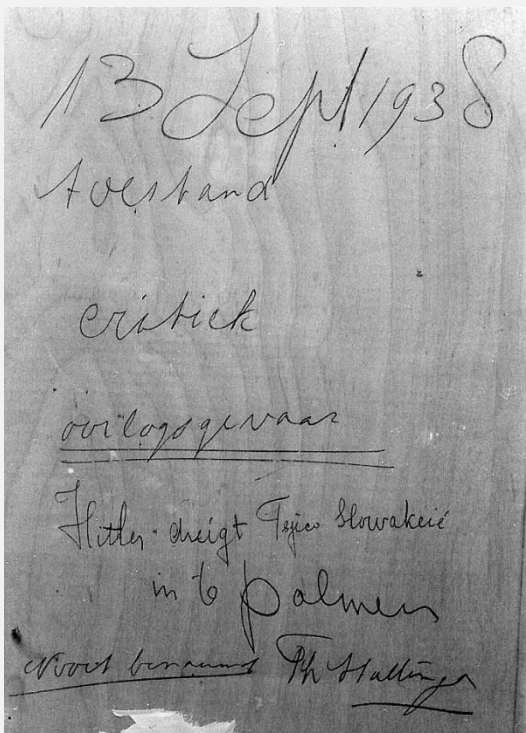 13 Sept 1938
toestand
critiek
oorlogsgevaar
Hitler dreigt Tsjeco Slowakeië
in te palmen
Ph Hallinga